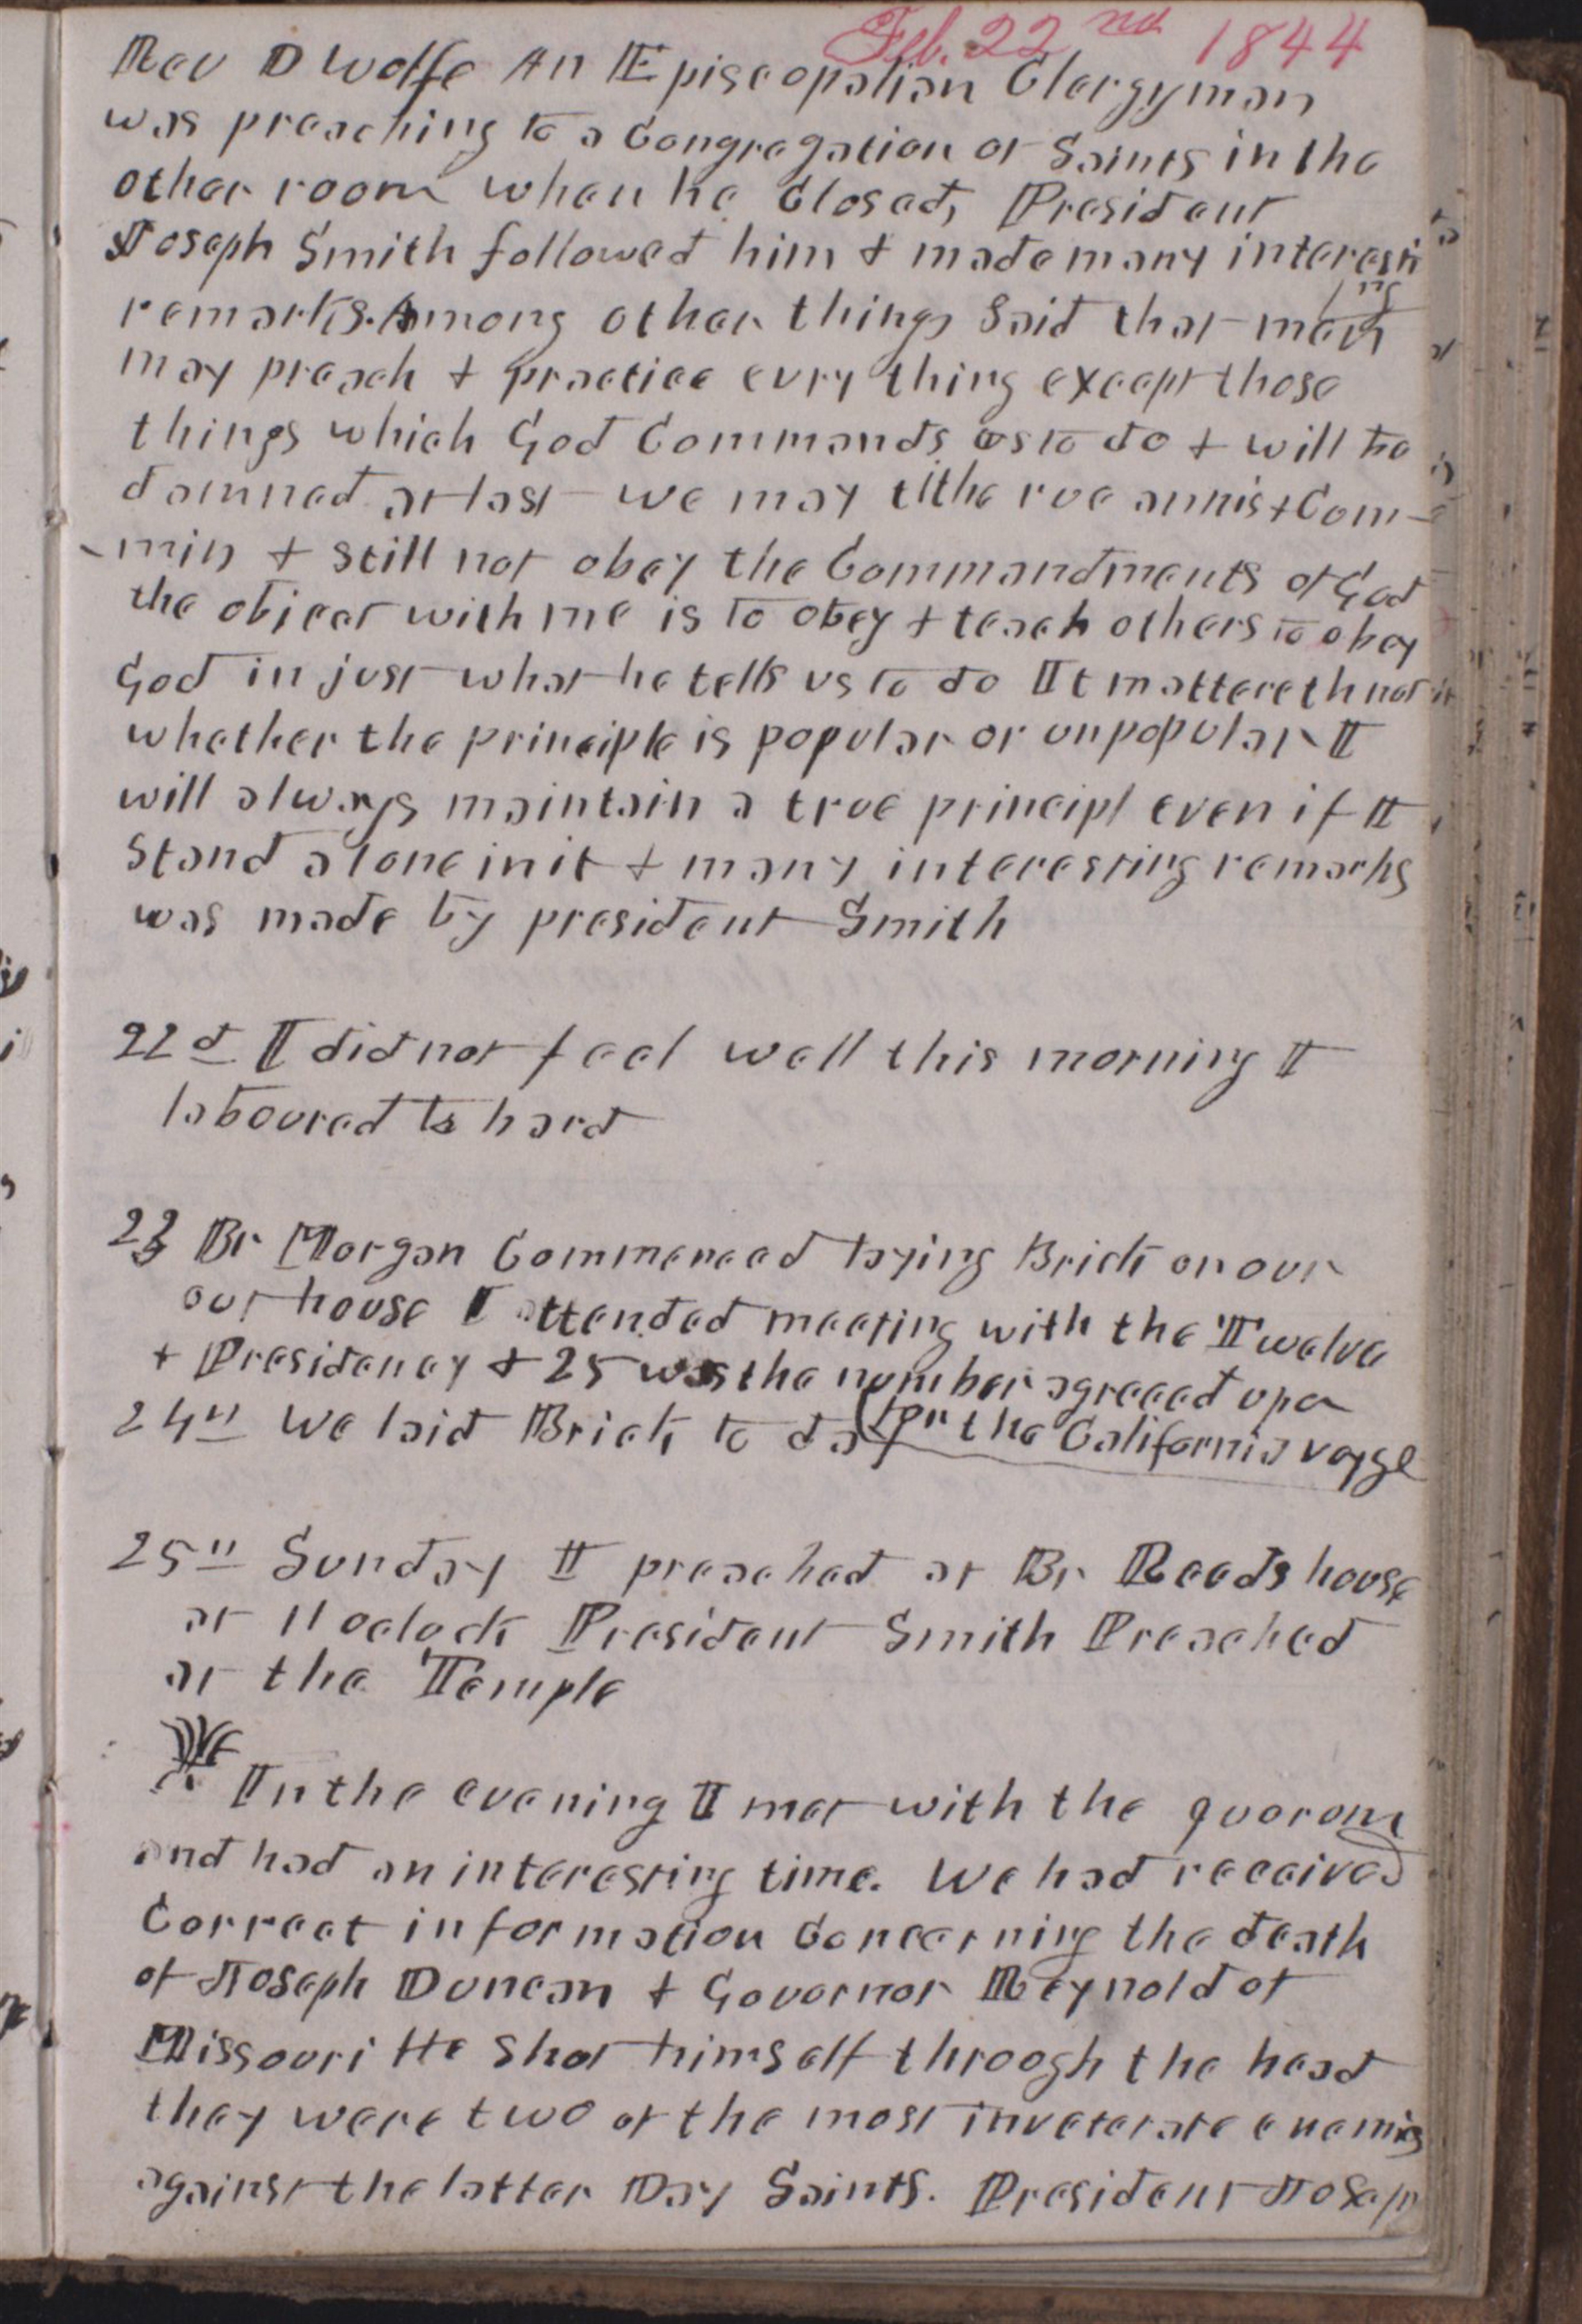 Feb. 22nd 1844
Rev D Wolfe An Episcopalian Clergyman
was preaching to a Congregation of Saints in the
other room when he Closed, President
Joseph Smith followed him & made many interesti
ng
remarks. Among other things Said that men
may preach & practice evry thing except those
things which God Commands us to do & will be
damned at last we may tithe rue annis & Com-
-min & still not obey the Commandments of God
the object with me is to obey & teach others to obey
God in just what he tells us to do It mattereth not
whether the principle is popular or unpopular I
will always maintain a true principl even if I
Stand alone in it & many interesting remarks
was made by president Smith
22d I did not feel well this morning I
laboured to hard
23 Br Morgan Commenced laying Brick on our
our house I attended meeting with the Twelve
& Presidency & 25 was the number agreeed upon
for the California voyge
24" We laid Brick to day
25" Sunday I preached at Br Reeds house
at 11 oclock President Smith Preached
at the Temple
In the evening I met with the quorom
and had an interesting time. We had received
Correct information Concerning the death
of Joseph Duncan & Governor Reynold of
Missouri He shot himself throogh the head
they were two of the most inveterate enemies
against the latter Day Saints. President Joseph